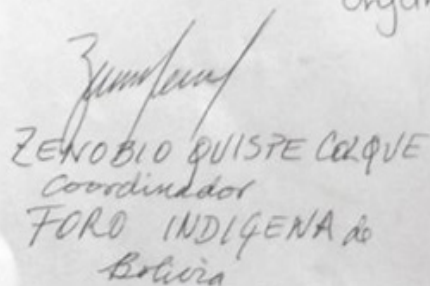 ZENOBIO QUISPE COLQUE
Coordinador
FORO INDIGENA de
Bolivia